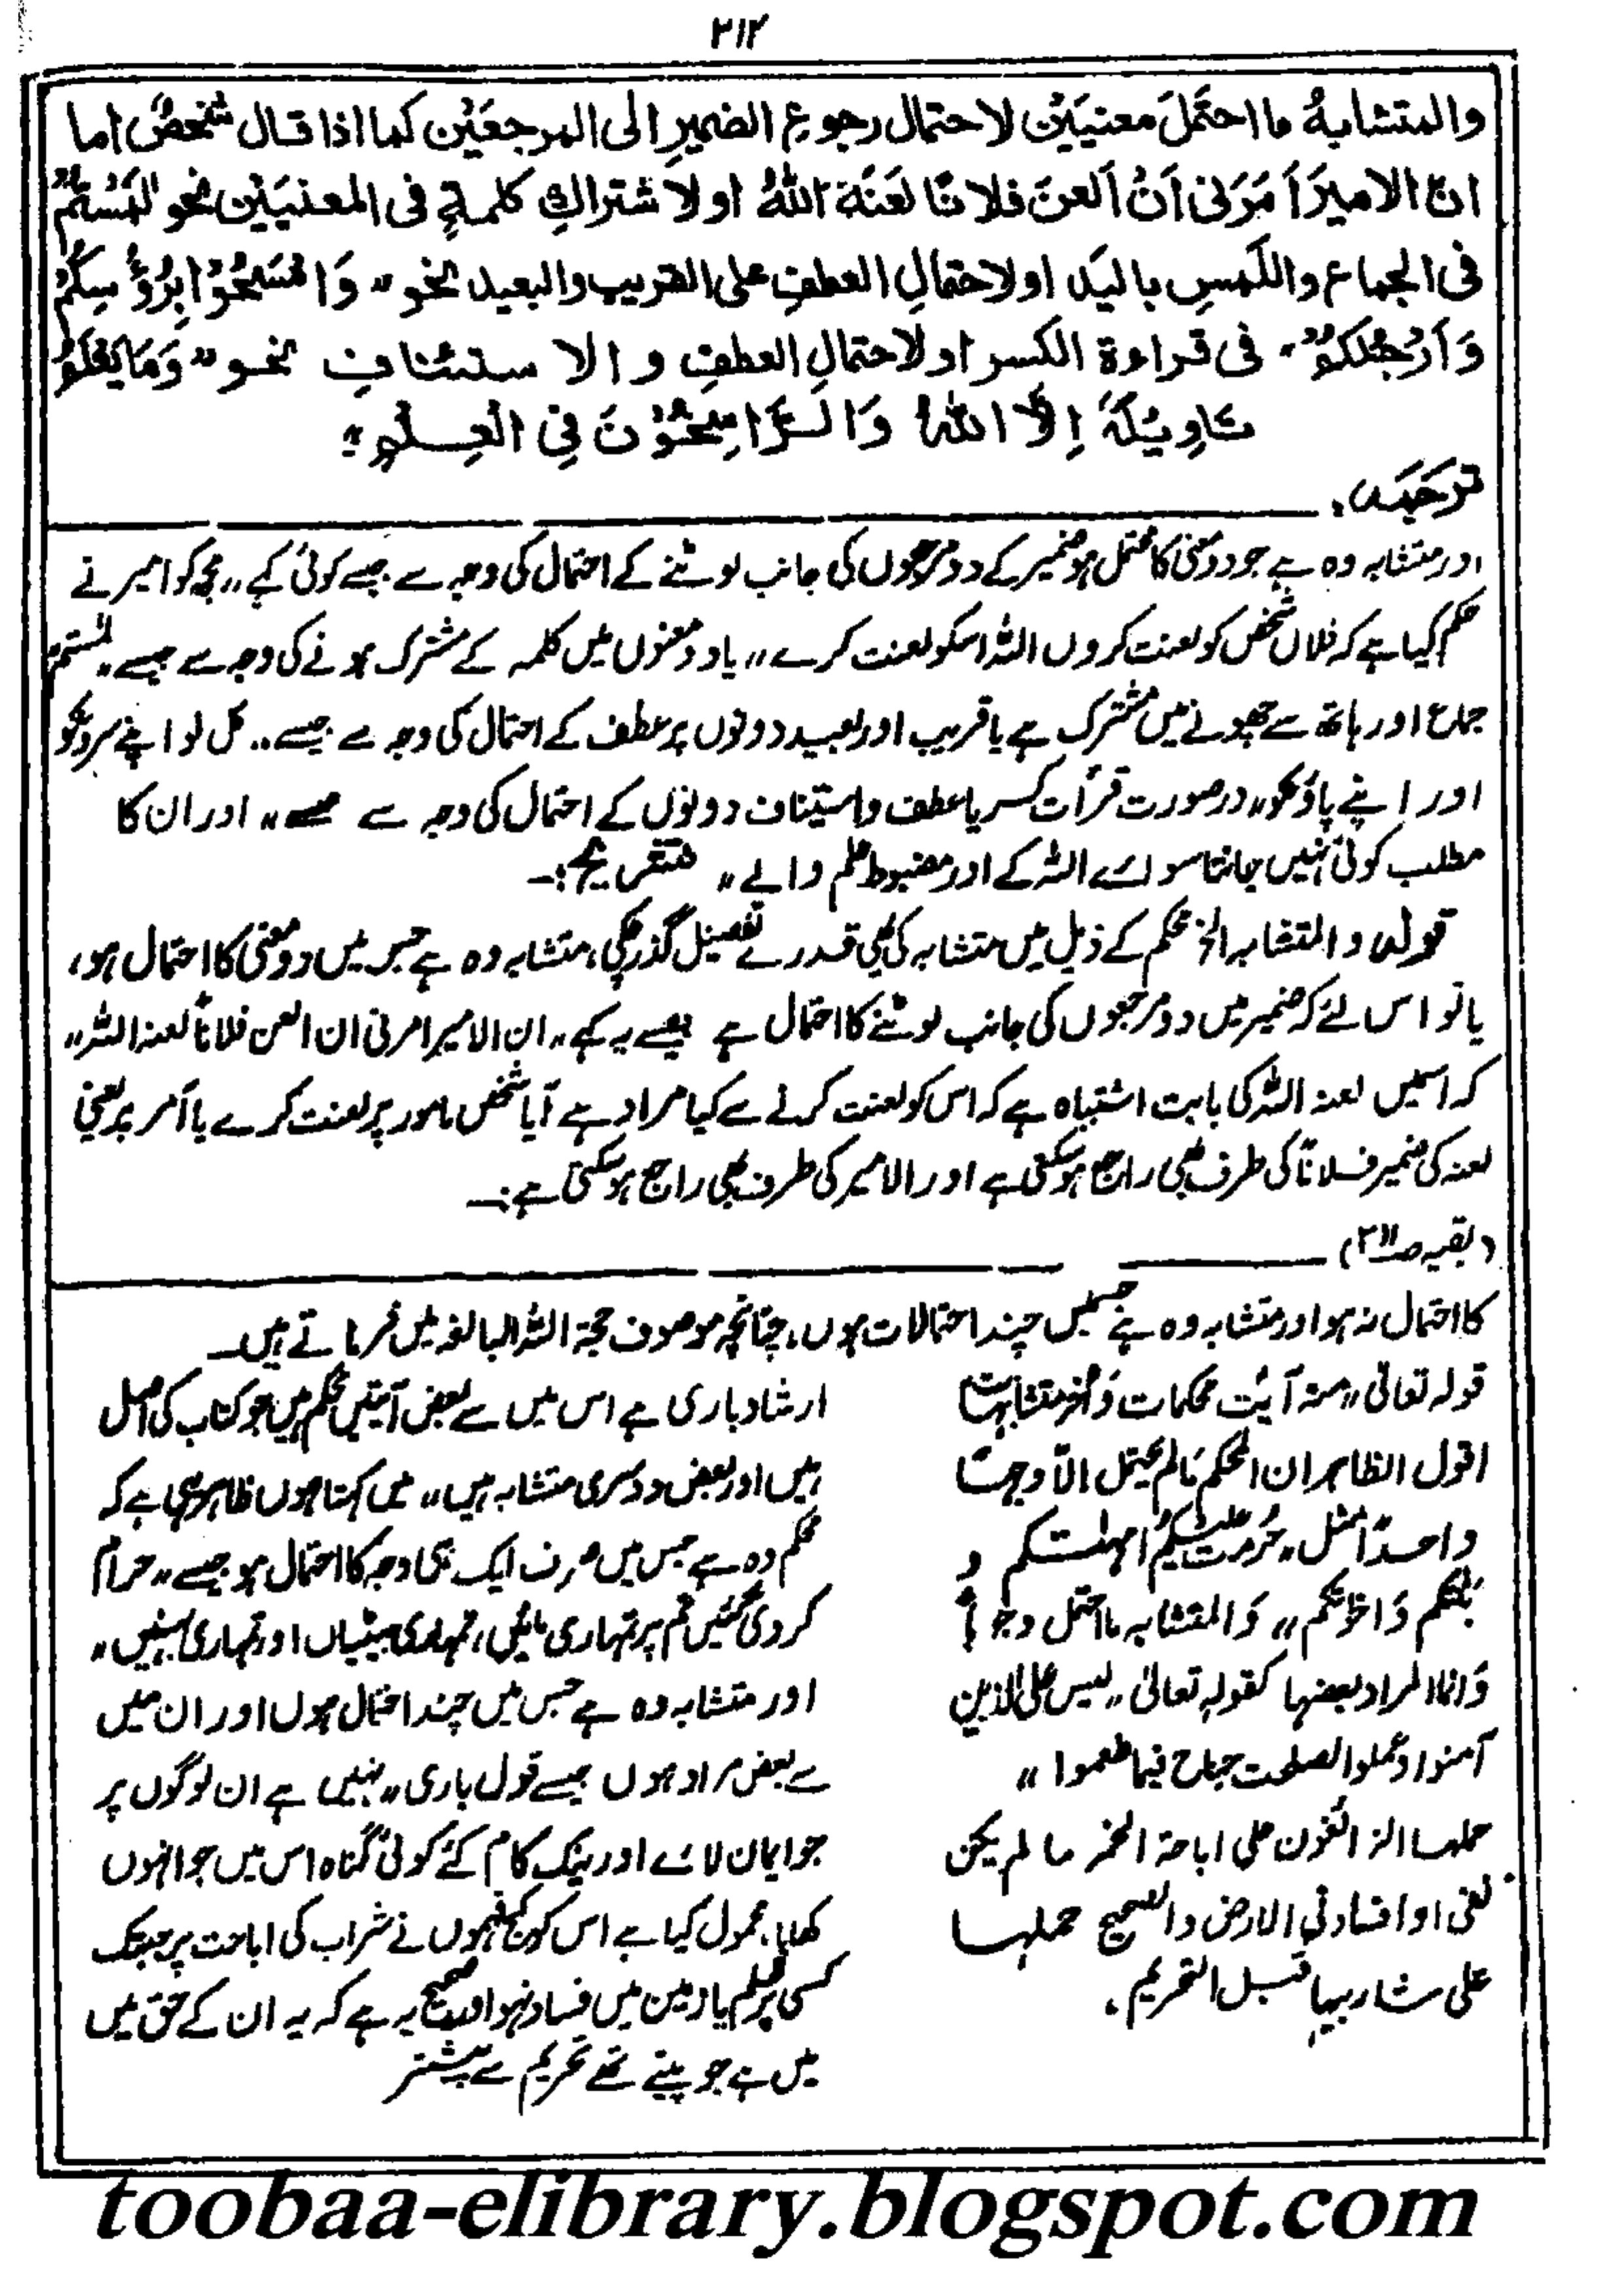 ۲۱۲
والمتشابهُ ما احتَمَلَ معنيَيْنِ لاحتمال رجوعِ الضميرِ الى المرجعَيْنِ كما اذا قال شخصٌ اما
انّ الاميرَ اَمَرَنی اَنْ اَلعنَ فلانًا لعَنَهَ اللّٰهُ او لاشتراكِ كلمةٍ فی المعنيَيْنِ نحو لٰمَسْتُمْ
فی الجماع واللَمسِ باليَد او لاحتمالِ العطفِ علی القريبِ والبعيد نحو ״ وَامْسَحُوْا بِرُؤُسِكُمْ
وَاَرْجُلِكُمْ״ فی قراءة الكسر او لاحتمالِ العطفِ و الاستئنافِ نحو ״ وَمَا يَعْلَمُ
تَاوِيْلَهٗ اِلَّا اللّٰهُ وَالرَّاسِخُوْنَ فِی الْعِلْمِ ״
ترجمہ،
اور متشابہ وہ ہے جو دو معنی کا محتمل ہو ضمیر کے دو مرجعوں کی جانب لوٹنے کے احتمال کی وجہ سے جیسے کوئی کہے ״ مجھ کو امیر نے
حکم کیا ہے کہ فلاں شخص کو لعنت کروں اللہ اسکو لعنت کرے ״ یا دو معنوں میں کلمہ کے مشترک ہونے کی وجہ سے جیسے ״ لٰمستم
جماع اور ہاتھ سے چھونے میں مشترک ہے یا قریب اور بعید دونوں پر عطف کے احتمال کی وجہ سے جیسے ״ مل لو اپنے سروں کو
اور اپنے پاؤں کو ״ در صورت قرأت کسر یا عطف و استیناف دونوں کے احتمال کی وجہ سے جیسے ״ اور ان کا
مطلب کوئی نہیں جانتا سوائے اللہ کے اور مضبوط علم والے ״ تشریح :ـ
قولہ والمتشابہ الخ محکم کے ذیل میں متشابہ کی بھی قدرے تفصیل گذر چکی، متشابہ وہ ہے جس میں دو معنی کا احتمال ہو،
یا تو اس لئے کہ ضمیر میں دو مرجعوں کی جانب لوٹنے کا احتمال ہے جیسے یہ کہے ״ ان الامیر امرنی ان العن فلاناً لعنہ اللہ ״
کہ اسمیں لعنہ اللہ کی بابت اشتباہ ہے کہ اس کو لعنت کرنے سے کیا مراد ہے آیا شخص مامور پر لعنت کرے یا آمر پر یعنی
لعنہ کی ضمیر فلاناً کی طرف بھی راجع ہوسکتی ہے اور الامیر کی طرف بھی راجع ہوسکتی ہے :ـ
(بقیہ صـ ۲۱۱)
کا احتمال نہ ہو اور متشابہ وہ ہے جسمیں چند احتمالات ہوں، چنانچہ موصوف حجۃ اللہ البالغہ میں فرماتے ہیں ـ
قولہ تعالیٰ ״ منہ آیٰت محکمات وَاُخر متشابہات
اقول الظاہر ان المحکم مَا لم یحتمل الّا وجہًا
واحدًا مثل ״ حُرمت علیکم امہٰتکم و
بنٰتکم وَاخوٰتکم ״ وَالمتشابہ ما احتمل وجوہًا
وَانما المراد بعضہا کقولہ تعالیٰ ״ لیس علی الذین
آمنوا وعملوا الصلحت جناح فیما طعموا ״
حملہا الزائغون علی اباحۃ الخمر ما لم یکن
بغی او افساد فی الارض والصحیح حملہا
علی شاربیہا قبل التحریم ،
ارشاد باری ہے اس میں سے بعض آیتیں محکم ہیں جو کتاب کی اصل
ہیں اور بعض دوسری متشابہ ہیں ״ میں کہتا ہوں ظاہر یہی ہے کہ
محکم وہ ہے جس میں صرف ایک ہی وجہ کا احتمال ہو جیسے ״ حرام
کر دی گئیں تم پر تمہاری مائیں، تمہاری بیٹیاں اور تمہاری بہنیں ״
اور متشابہ وہ ہے جس میں چند احتمال ہوں اور ان میں
سے بعض مراد ہوں جیسے قول باری ״ نہیں ہے ان لوگوں پر
جو ایمان لائے اور نیک کام کئے کوئی گناہ اس میں جو انہوں
کھایا، محمول کیا ہے اس کو کج فہموں نے شراب کی اباحت پر جبتک
کسی پر ظلم یا زمین میں فساد نہو اور صحیح یہ ہے کہ یہ ان کے حق میں
میں ہے جو پیتے تھے تحریم سے پیشتر
toobaa-elibrary.blogspot.com